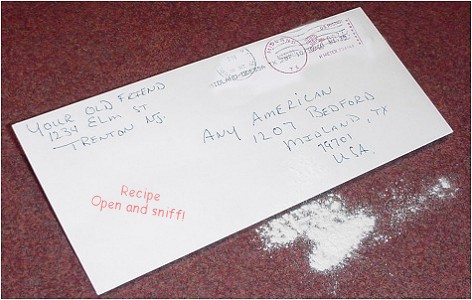 YOUR OLD FRIEND
1234 ELM ST
TRENTON NJ.
ANY AMERICAN
1207 BEDFORD
MIDLAND, TX
79701
USA.
Recipe
Open and sniff!